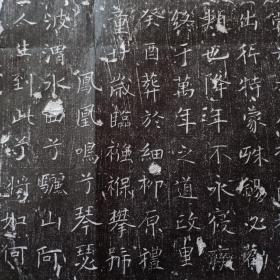 出行特蒙殊錫必
類也降年不永
終于萬年之道政里
癸酉葬於細柳原禮
童卝歲臨襁褓攀號
鳳凰鳴兮琴瑟
波渭水曲兮驪山阿
人生到此兮將如何